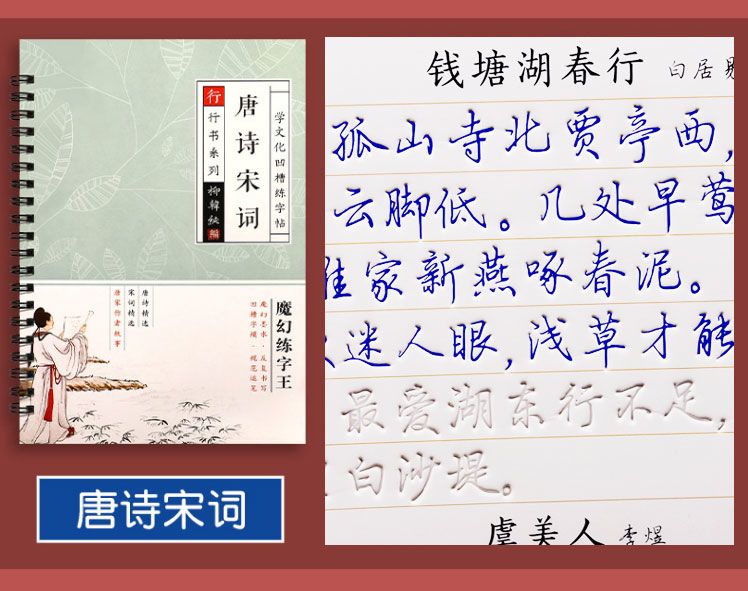 学文化凹槽练字帖
唐诗宋词
行
行书系列
柳韓紘
编
唐诗精选
宋词精选
唐宋作者轶事
魔幻练字王
魔幻墨水·反复书写
凹槽字模·规范运笔
唐诗宋词
钱塘湖春行 白居易
孤山寺北贾亭西,
云脚低。几处早莺
谁家新燕啄春泥。
迷人眼,浅草才能
最爱湖东行不足,
白沙堤。
虞美人 李煜